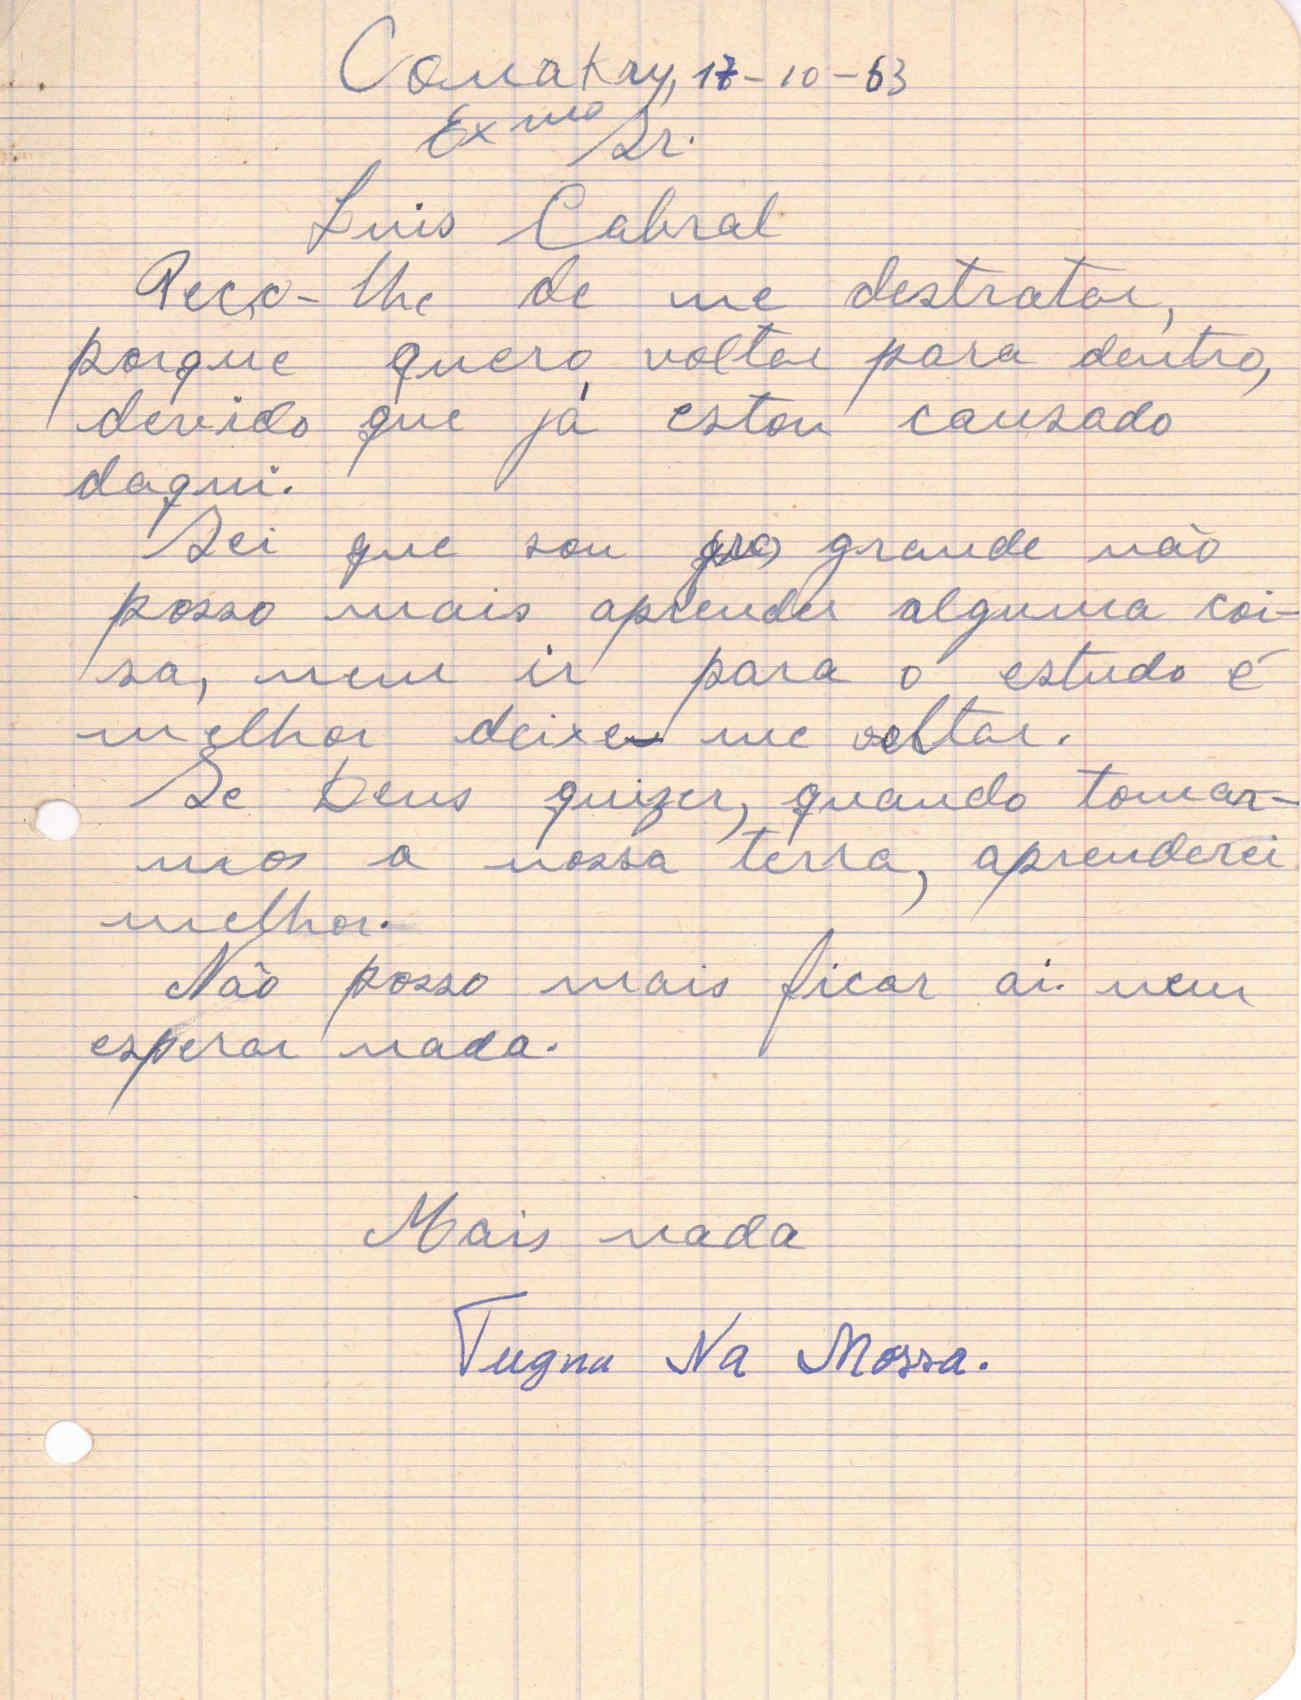 Conakry, 17-10-63
Exmo Sr.
Luis Cabral
Peço-lhe de me destratar,
porque quero voltar para dentro,
devido que já estou cansado
daqui.
Sei que sou grande não
posso mais aprender alguma coi-
sa, nem ir para o estudo é
melhor deixe me voltar.
Se Deus quizer, quando tomar-
mos a nossa terra, aprenderei
melhor.
Não posso mais ficar ai. nem
esperar nada.
Mais nada
Tugna Na Mossa.